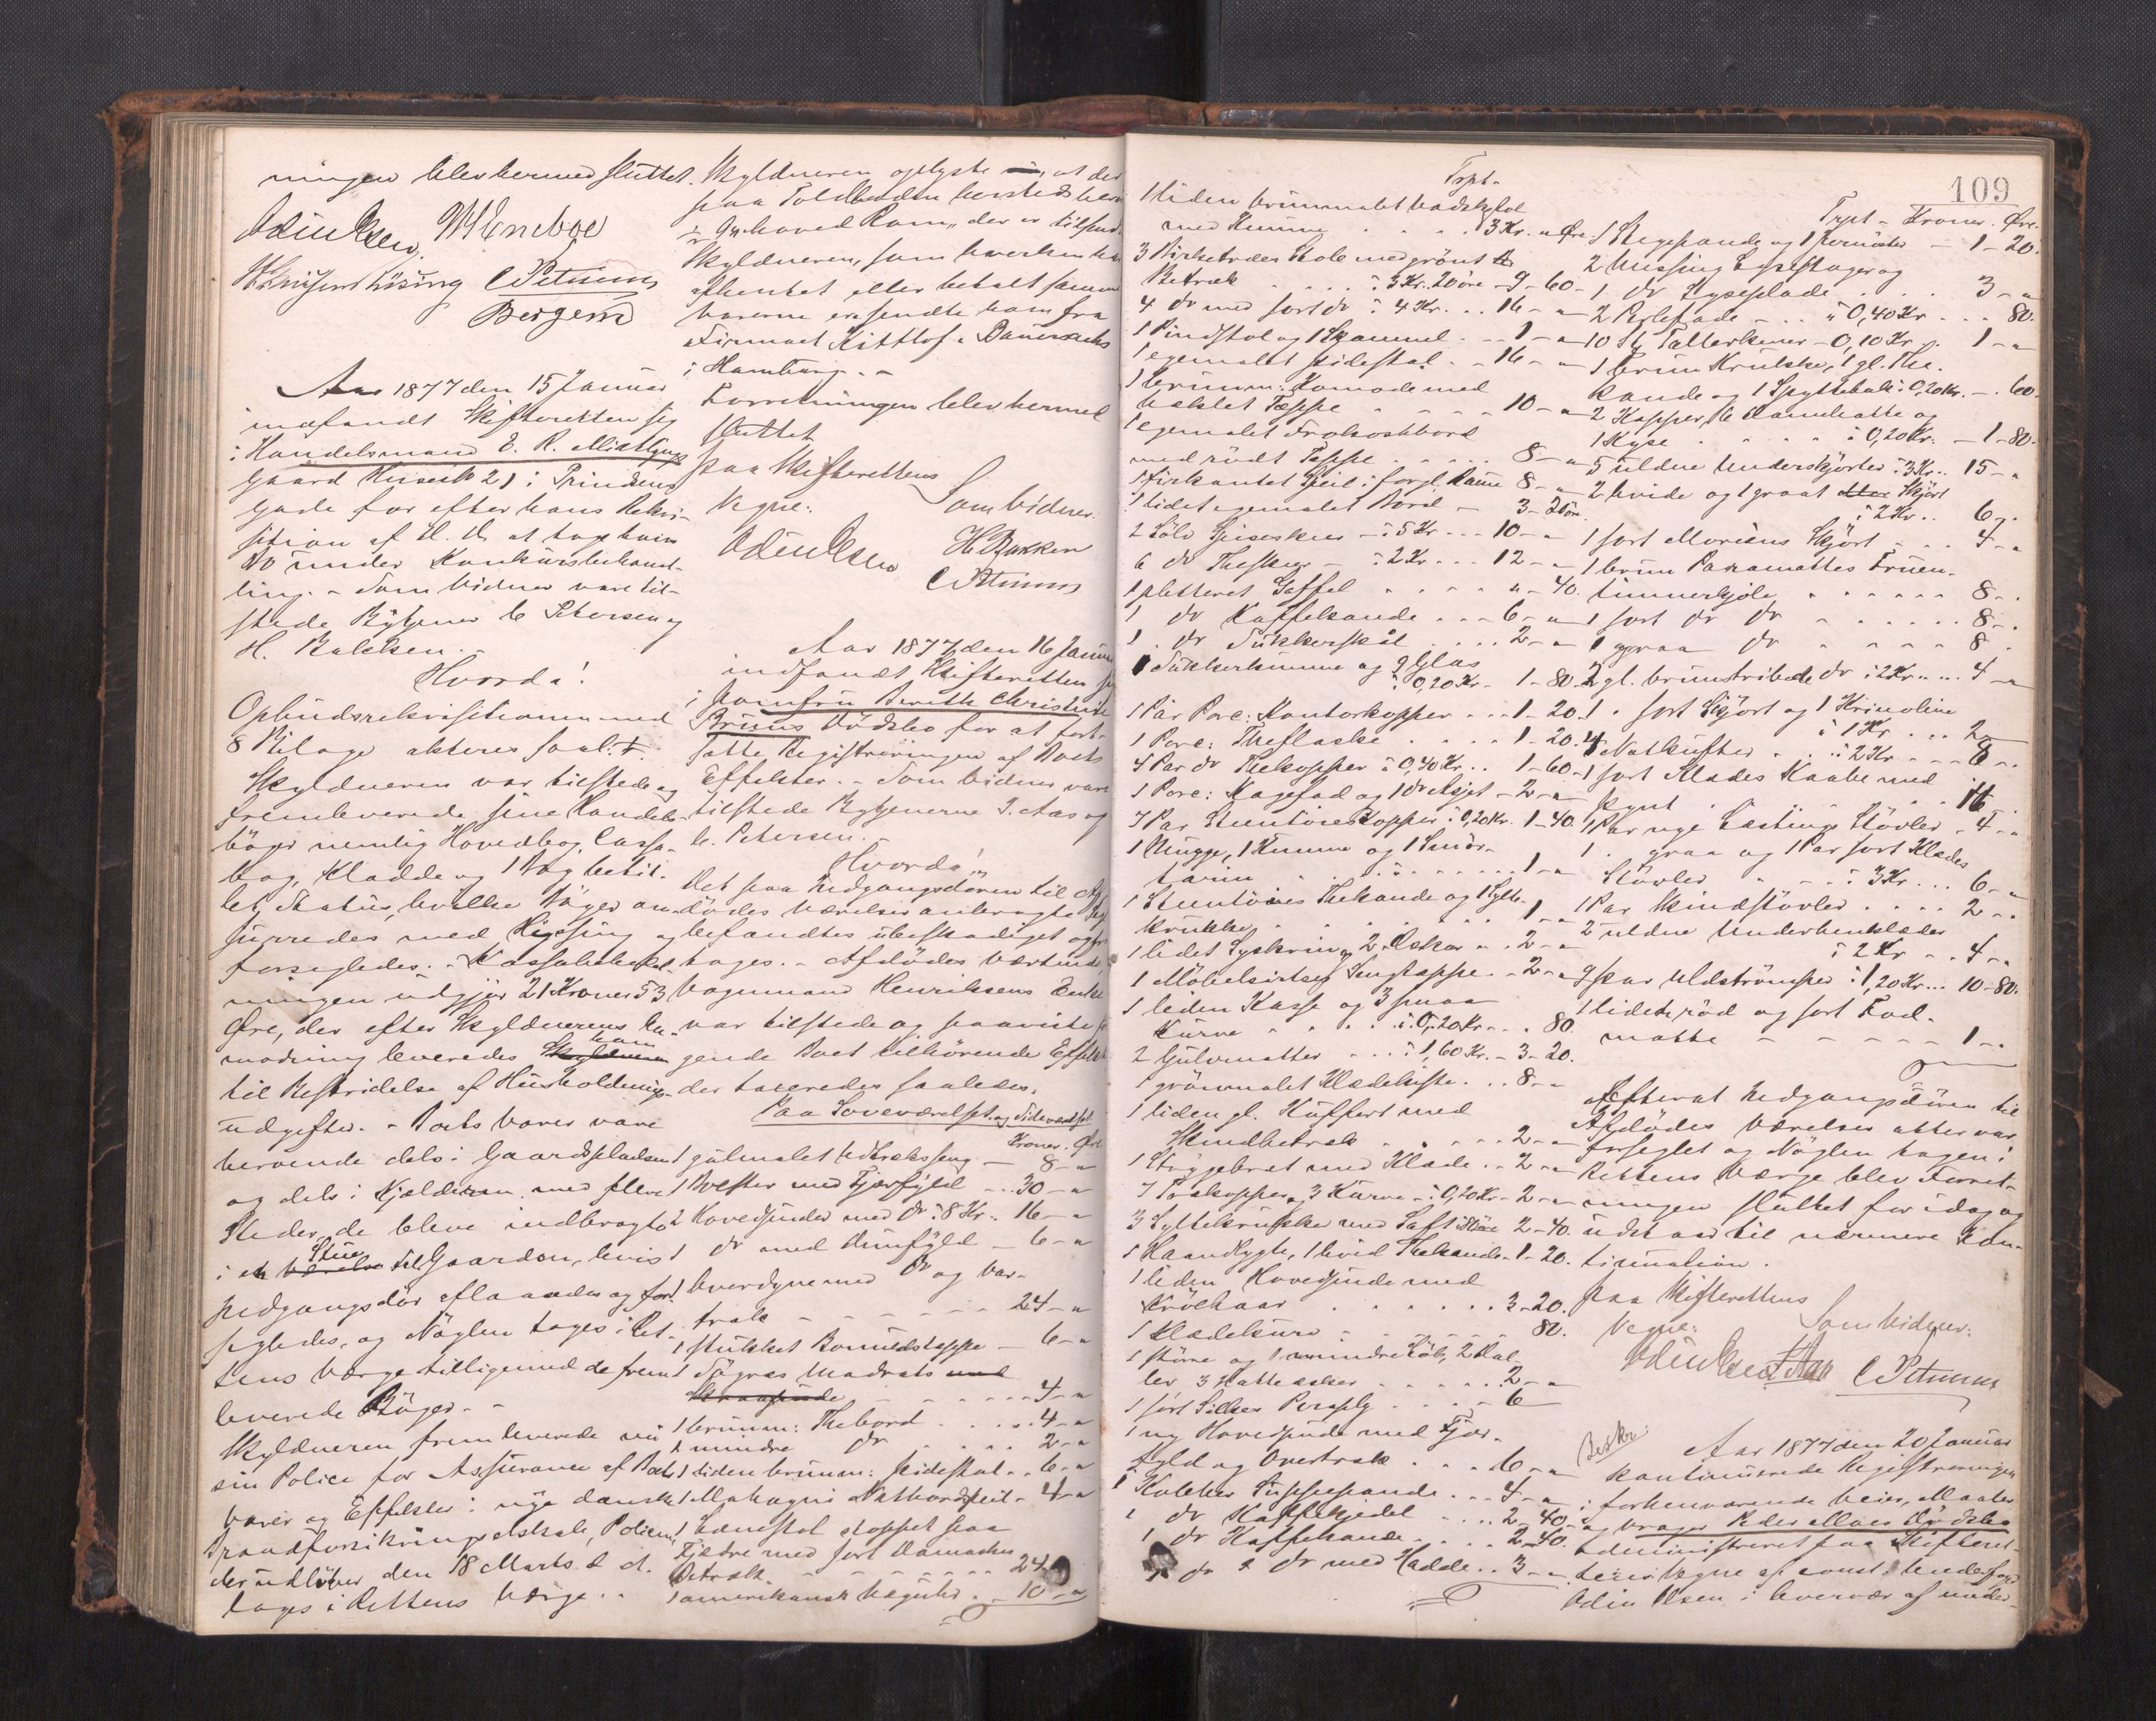 ningen blev hermed sluttet.
Odin Olsen. M Eneboe
C Petersen
Bergersen
Aar 1877 den 15 Januar
indfandt Skifteretten sig
i Handelsmand E. R.
Gaard Huus No 21 i Prindsens
gade for efter hans Rekvi-
sition af d. D. at tage hans
Bo under Konkursbehand-
ling. - Som Vidner vare til-
stede Bytjener C Petersen og
H. Bakken. -
Hvorda!
Opbudsrekvisitionen med
8 Bilage akteres saal: ✝.
Skyldneren var tilstede og
fremleverede sine Handels-
bøger nemlig Hovedbog, Cassa-
bog, Kladde og 1 Bog betit-
let Status, hvilke Bøger
med og
forsegledes. - Kassabehold-
ningen udgjør 21 Kroner 53
Øre, der efter Skyldnerens An-
modning leveredes ham
til Bestridelse af Husholdnings-
udgifter. - Boets Varer vare
beroende dels i Gaardspladsen
og dels i Kjælderen med flere
Steder, de bleve indbragte
i en Stue til Gaarden, hvis
Nedgangsdør aflaasedes og for-
segledes, og Nøglen tages i Ret-
tens Værge tilligemed de frem-
leverede Bøger. -
Skyldneren fremleverede nu
sin Police for Assurance af Boets
Varer og Effekter i nye danske
Brandforsikringsselskab, Policen
der udløber den 18 Marts d. A.
toges i Rettens Værge. -
Skyldneren oplyste at der
paa Toldboden hersteds
Rom, der er tilsendt
Skyldneren, som hverken har
afhentet eller betalt samme
Varerne ere sendte ham fra
Firmaet Kittlof &
i Hamburg. -
Forretningen blev hermed
sluttet
paa Skifterettens
Vegne: Som Vidner.
Odin Olsen H Bakken
C Petersen
Aar 1877 den 16 Januar
indfandt Skifteretten sig
i Jomfru Berith Christine
Bruuns Dødsbo for at fort-
sætte Registreringen af Boets
Effekter. - Som Vidner vare
tilstede Bytjenerne I. Aas og
C. Petersen. -
Hvorda!
Det paa Nedgangsdøren til Af-
dødes Værelser anbragte Segl
befandtes ubeskadiget og
toges. - Afdødes Værtinde,
Vognmand Henriksens Enke
var tilstede og paaviste føl-
gende Boet tilhørende Effekter
der taxeredes saaledes.
Paa Soveværelset og Sideværelset
Kroner. Øre
1 gulmalet Udtræksseng - 8 - "
1 Bolster med Fjærfyld - 30 - "
2 Hovedpuder med do à 8 Kr. 16 - "
1 do med Duunfyld - 6 - "
1 Overdyne med do og Var-
træk - 24 - "
1 stukket Bomuldstæppe - 6 - "
1 Søgræs Madrats
4 - "
1 bruunm: Thebord 4 - "
1 mindre do 2 - "
1 liden bruunm: Pidestal 6 - "
1 Mahogni Natbordspeil - 4 - "
1 Lænestol stoppet paa
Fjædre med sort Damaskes
Betræk 24 - "
1 amerikansk Væguhr 10 - "
109
Trpt.
1 liden bruunmalet Vadskstol
med Kumme 3 Kr. " Øre
3 Birketræes Stole med grønt
Betræk à 3 Kr. 20 Øre - 9 - 60 -
4 do med sort do à 4 Kr. 16 - "
1 Pindstol og 1 Skammel 1 - "
1 egemalet Pidestal 16 - "
1 bruunm: Komode med
hæklet Tæppe 10 - "
1 egemalet Frokostbord
med rødt Tæppe 8 - "
1 firkantet Speil i forgl. Ramme 8 - "
1 lidet egemalet Bord - 3 - 20 Øre
2 Sølv Spiseskeer - à 5 Kr 10 - "
6 do Theskeer - à 2 Kr 12 - "
1 pletteret Gaffel " - 40.
1 do Kaffekande 6 - "
1 do Sukkerskål 2 - "
1 Sukkerkumme og 9 Glas
à 0,20 Kr - 1 - 80
1 Par Porc: Kontorkopper 1 - 20.
1 Porc: Theflaske 1 - 20.
4 Par do Thekopper à 0,40 Kr. 1 - 60 -
1 Porc: Kagefad og 1 do Asjet - 2 - "
7 Par Steentøieskopper à 0,20 Kr. 1 - 40.
1 Mugge, 1 Kumme og 1 Smør-
1 - "
1 Steentøies Thekande og 1 Sylte-
krukke 1 - "
1 lidet Syskrin og 2 Æsker 2 - "
1 Møbelsirtses Sengtæppe 2 - "
1 liden Kasse og 3 smaa
Kurve à 0,20 Kr 80.
2 Gulvmatter à 1,60 Kr. - 3 - 20.
1 grønmalet Klædekiste 8 - "
1 liden gl. Kuffert med
Skindbetræk 2 - "
1 Strygebret med Klæde 2 - "
7 og 3 Kurve à 0,20 Kr - 2 - "
3 Syltekrukker med Saft 2 - 40.
1 Haandlygte, 1 hvid Thekande - 1 - 20.
1 liden Hovedpude med
Krølhaar 3 - 20.
1 Klædekurv 80.
1 større og 1 mindre 2
3 Hatteæsker 2 - "
1 sort Silkes Paraply 6
1 ny Hovedpude med Fjær-
fyld og Overtræk 6 - "
1 Kobber Suppepande 4 - "
1 do Kaffekjedel 2 - 40.
1 do Kaffekande 2 - 40.
1 do do med Hadde 3 - "
Trpt - Kroner. Øre.
1 Stegepande og - 1 - 20.
2 Messing Lysestager og
1 do Lyseplade 3 - "
2 à 0,40 Kr 80.
10 St. Tallerkener - 0,10 Kr 1 - "
1 bruun Krukke, 1 gl. The-
kande og 1 Spyttebak à 0,20 Kr. 60.
2 Kapper, 6 Damehatte og
1 Kyse à 0,20 Kr. - 1 - 80.
5 uldne Underskjorter à 3 Kr. 15 - "
2 hvide og 1 graat Skjørt
à 2 Kr 6 -
1 sort Moriens Skjørt 4 - "
1 bruun Paramattes Fruen-
timmerkjole 8 -
1 sort do do 8 -
1 graa do 8
2 gl. bruunstribede do à 2 Kr 4 - "
1 sort Skjørt og 1 Krinoline
à 1 Kr 2
4 Natkufter à 2 Kr 8
1 sort Klædes Kaabe med
Pynt 16
1 Par nye Lastings Støvler - 4 - "
1 graa og 1 Par sort Klædes
Støvler à 3 Kr 6 - "
1 Par Skindstøvler 2 -
2 uldne Underbenklæder
à 2 Kr 4 - "
9 Par Uldstrømper à 1,20 Kr 10 - 80.
1 liden rød og sort Fod-
matte 1 -
Efterat Nedgangsdøren til
Afdødes Værelser atter var
forseglet og Nøglen tagen i
Rettens Værge blev Forret-
ningen sluttet for idag og
udsat til nærmere Kon-
tinuation.
Paa Skifterettens
Vegne: Som Vidner:
Odin Olsen I Aas C Petersen
Beskr:
Aar 1877 den 20 Januar
kontinuerede Registreringen
i forhenværende Veier, Maaler
og Vrager Peder Moes Dødsbo
administreret paa Skifteret-
tens Vegne af const. Underfoged
Odin Olsen i Overvær af under-